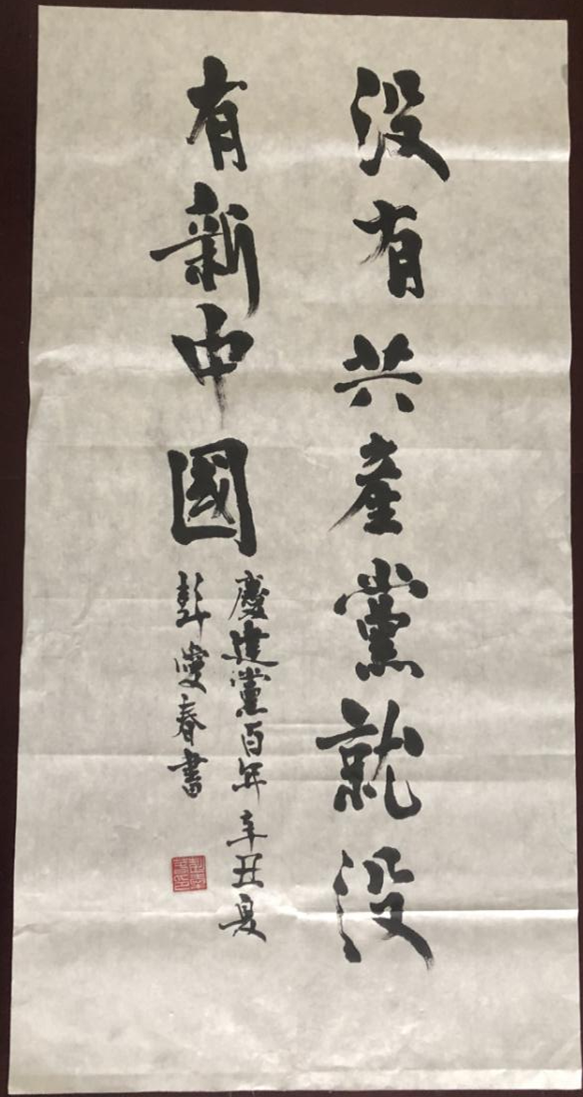 没有共產黨就没
有新中國
慶建黨百年辛丑夏
彭愛春書